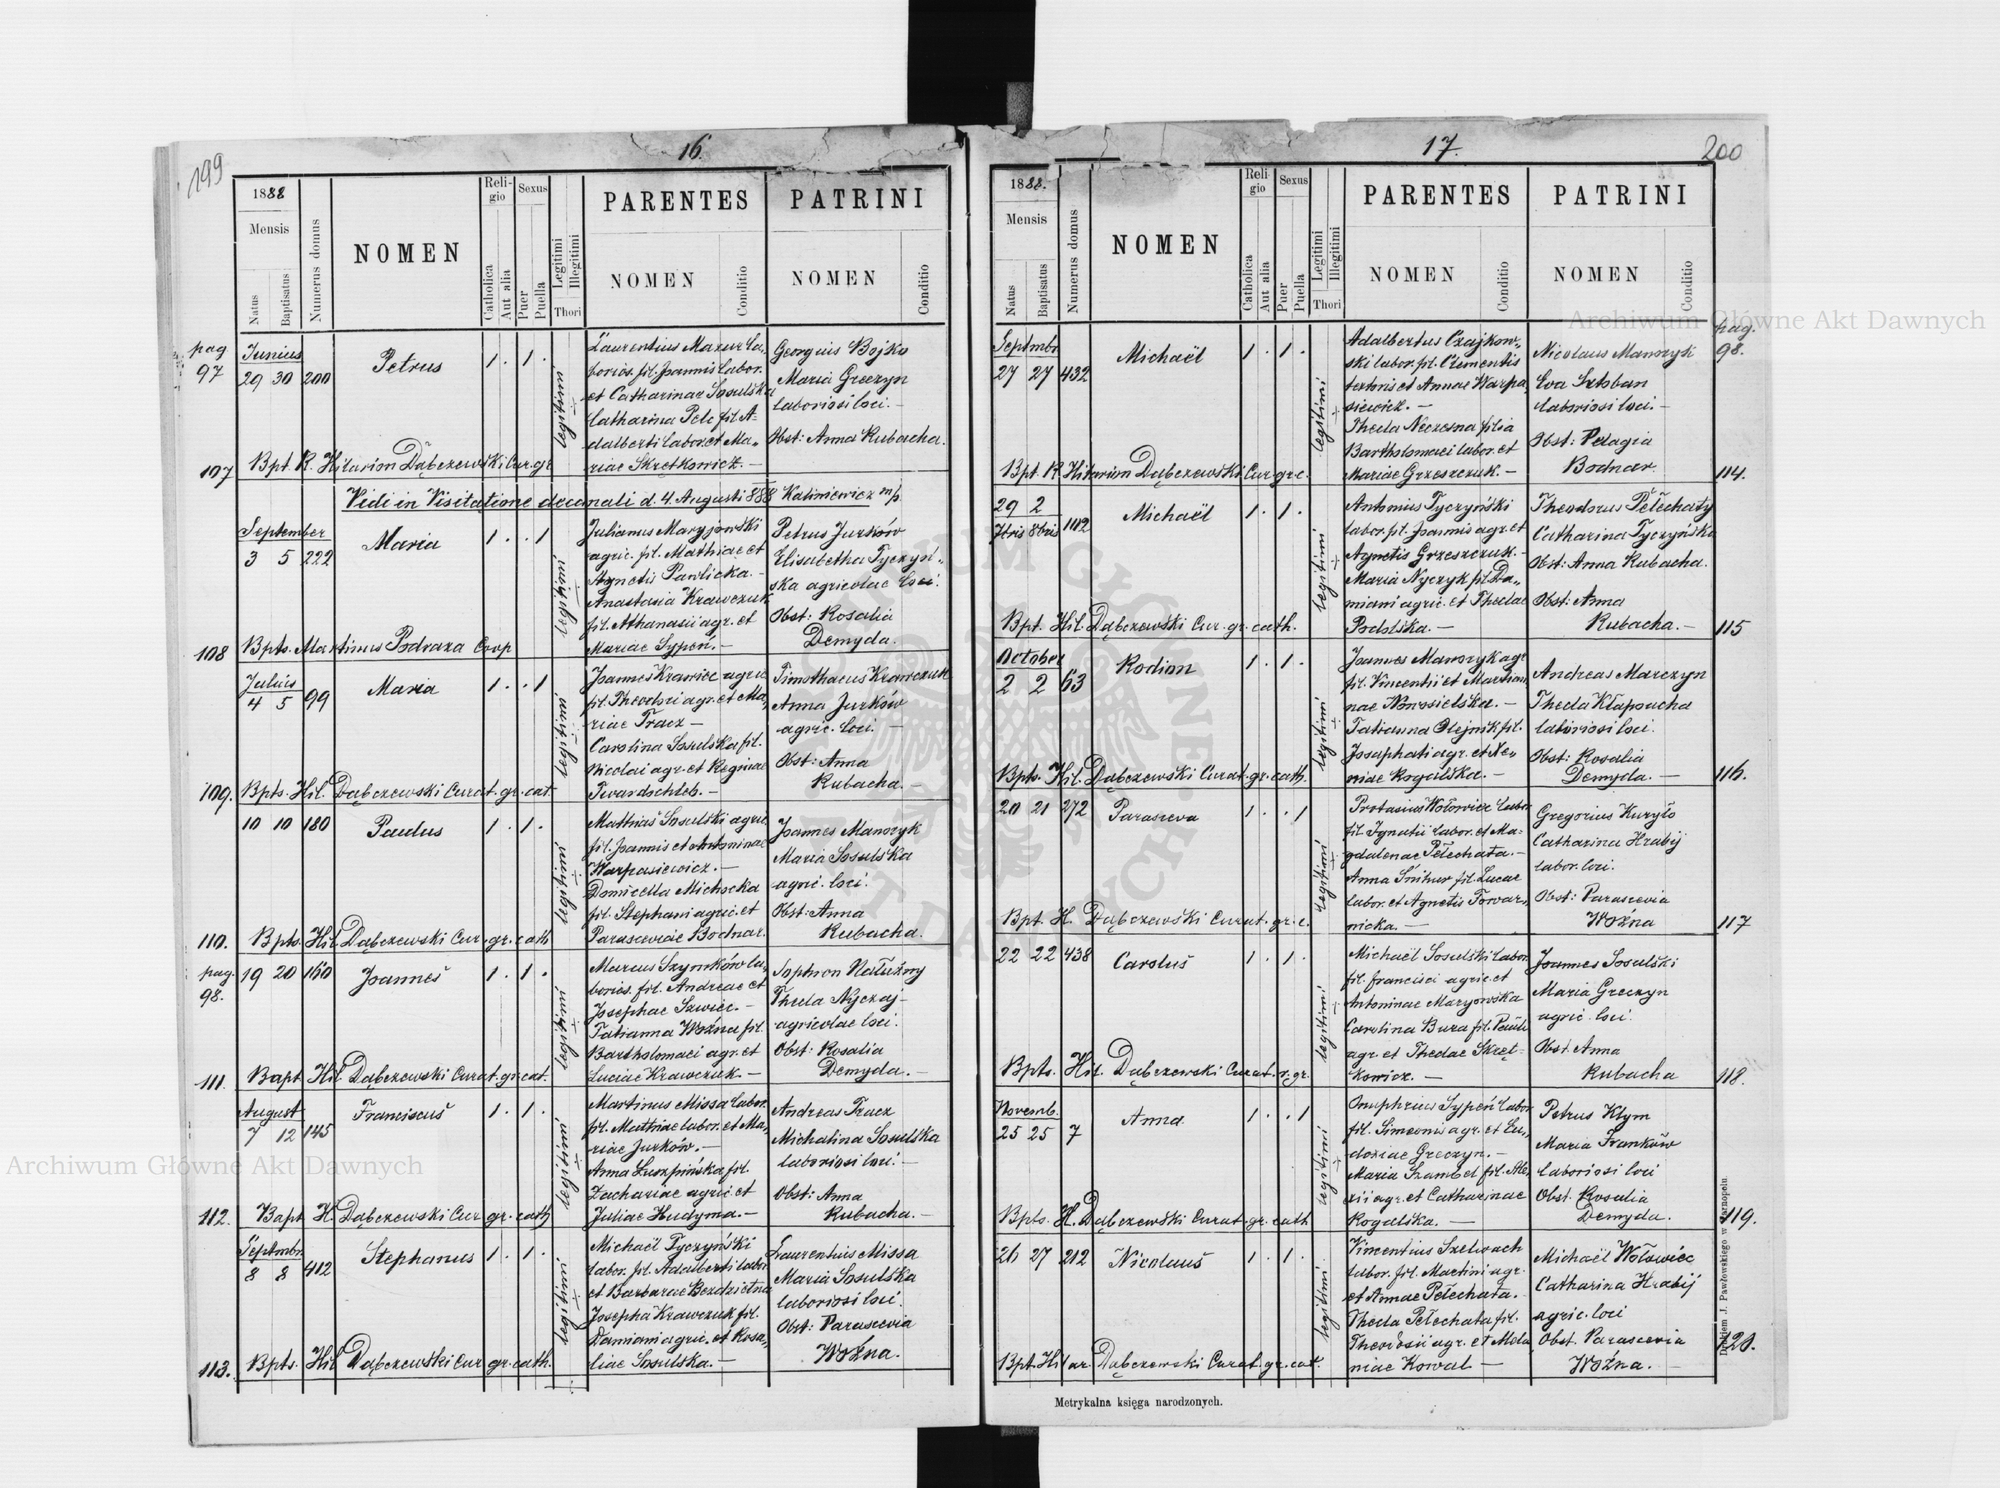 199
16.
1888
Mensis
Natus
Baptisatus
Numerus domus
NOMEN
Reli-
gio
Catholica
Aut alia
Sexus
Puer
Puella
Legitimi
Illegitimi
Thori
PARENTES
NOMEN
Conditio
PATRINI
NOMEN
Conditio
pag
97
Junius
29 30 200
Petrus
1 . 1 .
legitimi
Laurentius Mazur la-
borios. fil. Joannis labor.
et Catharinae Sosulska
Catharina Pelc fil A-
dalberti labor. et Ma-
riae Skretkowicz. —
Georgius Bojko
Maria Greczyn
laboriosi loci. —
Obst: Anna Rubacha.
107 Bpt. R. Hilarion Dąbczewski Cur. gr
Vidi in Visitatione decanali d. 4. Augusti 888 Kaliniewicz m/p.
September
3 5 222
Maria
1 . . 1
legitimi
Julianus Maryjowski
agric. fil. Mathiae et
Agnetis Pawlicka. —
Anastasia Krawczuk
fil. Athanasii agr. et
Mariae Sypeń. —
Petrus Jurków
Elisabetha Tyczyń-
ska agricolae loci.
Obst: Rosalia
Demyda.
108 Bpts. Martinus Podraza Coop
Julius
4 5 99
Maria
1 . . 1
legitimi
Joannes Krawiec agric
fil. Theodori agr. et Ma-
riae Tracz —
Carolina Sosulska fil.
Nicolai agr. et Reginae
Twardochleb. —
Timothaeus Krawczuk
Anna Jurków
agric. loci. —
Obst: Anna
Rubacha. —
109. Bpts. Hil. Dąbczewski Curat. gr. cat.
10 10 180
Paulus
1 . 1 .
legitimi
Mathias Sosulski agric
fil. Joannis et Antoninae
Warpasiewicz. —
Domicella Michocka
fil. Stephani agric. et
Parasceviae Bodnar.
Joannes Mamczyk
Maria Sosulska
agric. loci.
Obst: Anna
Rubacha.
110. Bpts. Hil Dąbczewski Cur. gr. cath
pag.
98.
19 20 160
Joannes
1 . 1 .
legitimi
Marcus Szymków la-
borios. fil. Andreae et
Josephae Szwiec. —
Tatianna Woźna fil.
Bartholomaei agr. et
Luciae Krawczuk. —
Sophron Nałużny
Thecla Nyczaj
agricolae loci.
Obst: Rosalia
Demyda. —
111. Bapt Hil Dąbczewski Curat. gr. cat.
August
7 12 145
Franciscus
1 . 1 .
legitimi
Martinus Missa labor.
fil. Mathiae labor. et Ma-
riae Jurków. —
Anna Luszpińska fil.
Zachariae agric. et
Juliae Hudyma. —
Andreas Tracz
Michalina Sosulska
laboriosi loci. —
Obst: Anna
Rubacha. —
112. Bapt H. Dąbczewski Cur gr. cath
Septmbr.
8 8 412
Stephanus
1 . 1 .
legitimi
Michaël Tyczyński
labor. fil. Adalberti labor
et Barbarae Bezdzietna
Josepha Krawczuk fil.
Damiani agric. et Rosa-
liae Sosulska. —
Laurentius Missa
Maria Sosulska
laboriosi loci.
Obst: Parascevia
Woźna.
113. Bpts. Hil Dąbczewski Cur gr. cath.
17.
200
1888.
Mensis
Natus
Baptisatus
Numerus domus
NOMEN
Reli-
gio
Catholica
Aut alia
Sexus
Puer
Puella
Legitimi
Illegitimi
Thori
PARENTES
NOMEN
Conditio
PATRINI
NOMEN
Conditio
pag.
98.
Septmbr
27 27 432
Michaël
1 . 1 .
legitimi
Adalbertus Czajkow-
ski labor. fil. Clementis
textoris et Annae Warpa
siewicz. —
Thecla Neczesna filia
Bartholomaei labor. et
Mariae Grzeszczuk. —
Nicolaus Mamczyk
Eva Sztoban
laboriosi loci. —
Obst: Pelagia
Bodnar.
Bpt. R. Hilarion Dąbczewski Cur. gr c. 114.
29 2
7bris 8bris 142
Michaël
1 . 1 .
legitimi
Antonius Tyczyński
labor. fil. Joannis agr. et
Agnetis Grzeszczuk. —
Maria Nyczyk fil. Da-
miani agric. et Theclae
Podolska. —
Theodorus Pełechaty
Catharina Tyczyńska
Obst: Anna Rubacha.
Obst: Anna
Rubacha. —
Bpt. Hil. Dąbczewski Cur. gr. cath. 115
October
2 2 63
Rodion
1 . 1 .
legitimi
Joannes Mamczyk agr
fil. Vincentii et Marian-
nae Nowosielska. —
Tatianna Olejnik fil.
Josaphati agr. et Xe-
niae Rogalska. —
Andreas Marczyn
Thecla Kłapoucha
laboriosi loci.
Obst: Rosalia
Demyda. —
Bpts. Hil. Dąbczewski Curat. gr. cath. 116.
20 21 272
Parasceva
1 . . 1
legitimi
Protasius Wołowiec labor
fil Ignatii labor. et Ma-
gdalenae Pełechata. —
Anna Śnihur fil. Lucae
labor. et Agnetis Towar-
nicka. —
Gregorius Kuryło
Catharina Hrabij
labor. loci.
Obst: Parascevia
Woźna
Bpt. H. Dąbczewski Curat. gr. c. 117
22 22 438
Carolus
1 . 1 .
legitimi
Michaël Sosulski labor
fil. Francisci agric et
Antoninae Maryowska
Carolina Buza fil. Pauli
agr. et Theclae Skręt-
kowicz. —
Joannes Sosulski
Maria Greczyn
agric. loci.
Obst. Anna
Rubacha
Bpts. Hil. Dąbczewski Curat. r. gr. 118.
Novemb.
25 25 7
Anna
1 . . 1
legitimi
Onuphrius Sypeń labor
fil. Simeonis agr. et Eu-
doxiae Greczyn. —
Maria Szambel fil. Ale-
xii agr. et Catharinae
Rogalska. —
Petrus Klym
Maria Franków
laboriosi loci
Obst. Rosalia
Demyda.
Bpts. H. Dąbczewski Curat. gr. cath 119.
26 27 212
Nicolaus
1 . 1 .
legitimi
Vincentius Szelwach
labor. fil. Martini agr.
et Annae Pełechata. —
Thecla Pełechata fil.
Theodosii agr. et Mela
niae Kowal —
Michaël Wołowiec
Catharina Hrabij
agric. loci
Obst. Parascevia
Woźna. —
Bpt. Hilar Dąbczewski Curat. gr. cat. 120.
Drukiem J. Pawłowskiego w Tarnopolu.
Metrykalna księga narodzonych.
Archiwum Główne Akt Dawnych
Archiwum Główne Akt Dawnych
ARCHIWUM GŁÓWNE AKT DAWNYCH